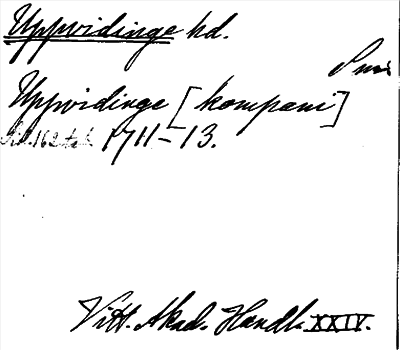 Uppvidinge hd.
Uppvidinge [kompani]
1711-13.
Vitt. Akad. Handl. XXIV.